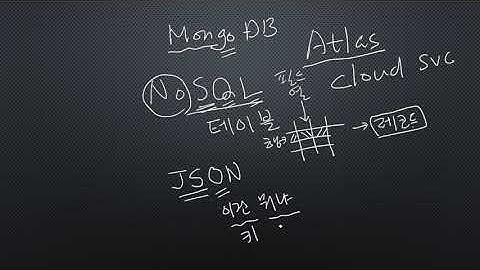 Mongo DB
Atlas
cloud svc
NoSQL
필드
열
테이블
행
레코드
JSON
이건 뭐냐
키